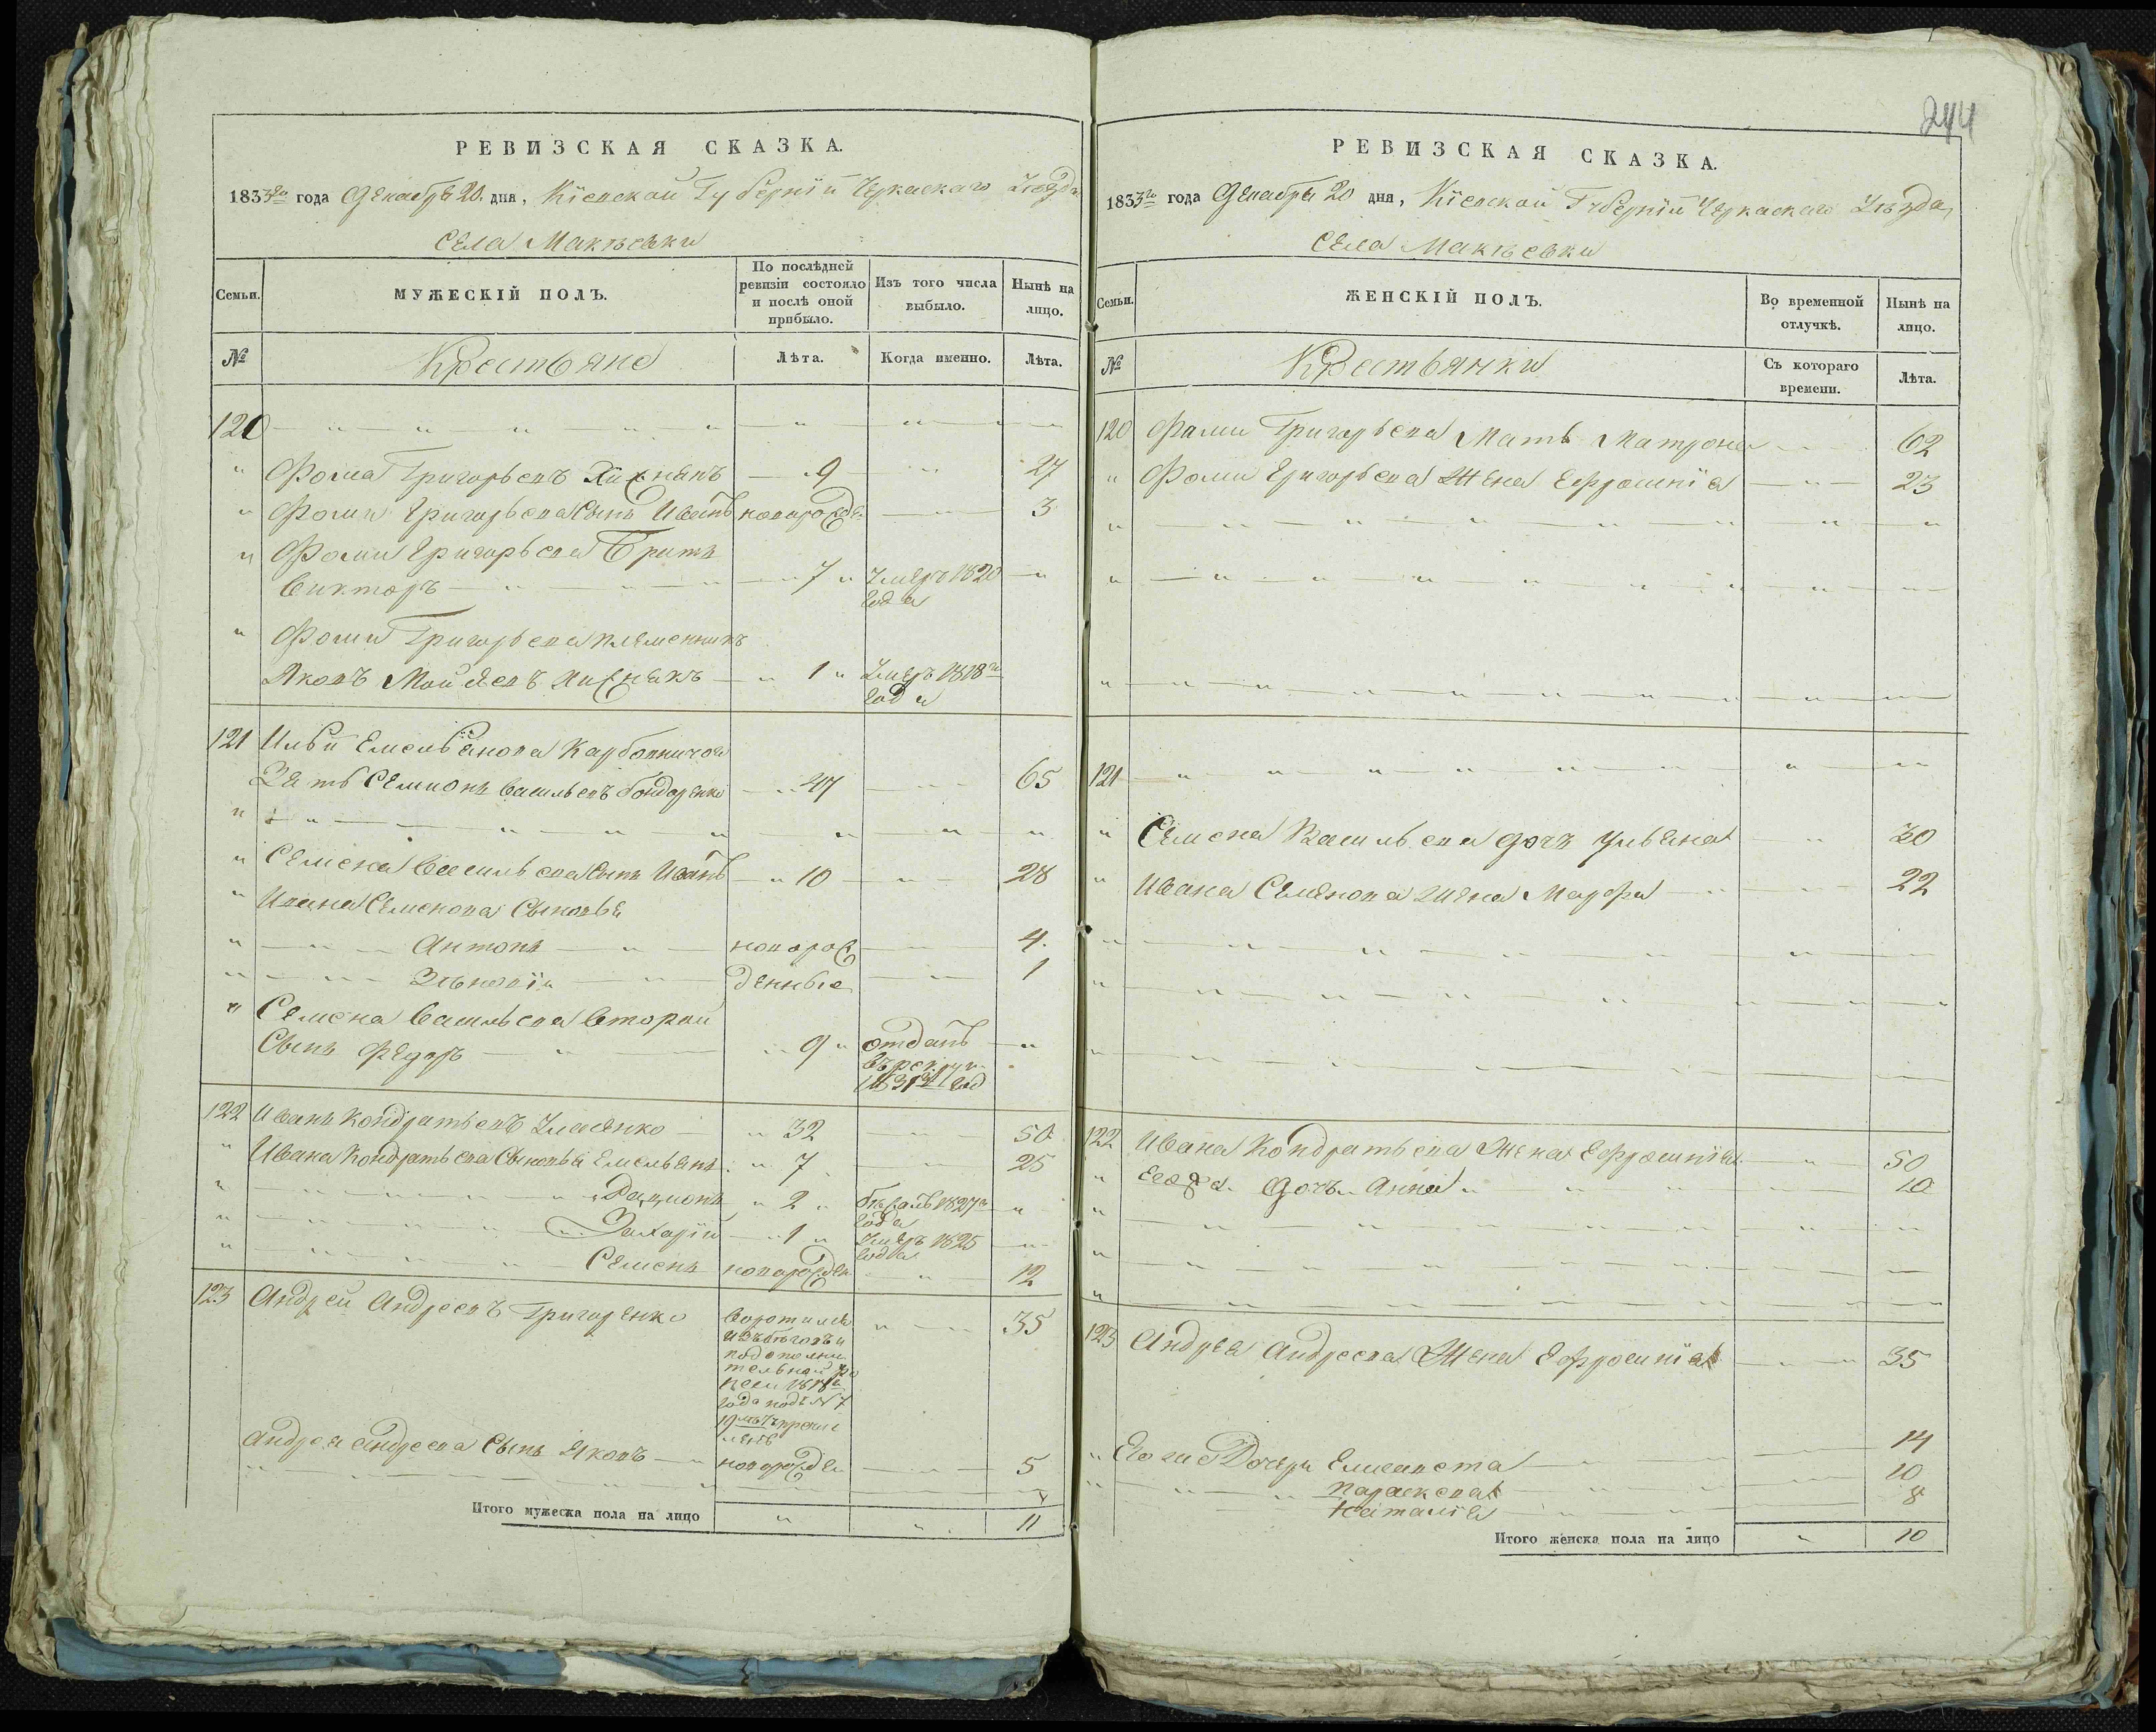 РЕВИЗСКАЯ СКАЗКА.
1833го года Декабря 20. дня, Кіевской Губерніи Черкаскаго Уѣзда
Села Макѣевки
Семьи.
МУЖЕСКІЙ ПОЛЪ.
По послѣдней ревизіи состояло и послѣ оной прибыло.
Изъ того числа выбыло.
Нынѣ на лицо.
№
Крестьяне
Лѣта.
Когда именно.
Лѣта.
120
" Фома Григорьевъ 9 27
" Фомы Григорьева Сынъ Иванъ новорожден 3
" Фомы Григорьева Братъ
Викторъ " 7 " Умеръ 1820
года
" Фомы Григорьева племенникъ
Яковъ " 1 " Умеръ 1818го
года
121 Ильи Емельянова
Зять Семионъ Васильевъ Бондаренко " 47 65
"
" Семена Васильева Сынъ Иванъ " 10 28
" Ивана Семенова Сыновья
" Антонъ новорож 4.
" Зѣновій денные 1
" Семена Васильева второй
Сынъ Федоръ " 9 " отданъ "
въ рекруты
1831 год
122 Иванъ Кондратьевъ " 32 50
" Ивана Кондратьева Сыновья Емельянъ " 7 25
" " 2 " бѣжалъ 1827го "
года
" Захарій " 1 " Умеръ 1825
года
" Семенъ новорожден 12
123 Андрей Андреевъ Григоренко Воротился 35
изъ бѣговъ и
по дополни
тельной ре
1818го
года подъ №7
19
Андрея Андреева Сынъ Яковъ новорожден 5
Итого мужеска пола на лицо " " 11
244
РЕВИЗСКАЯ СКАЗКА.
1833го года Декабря 20 дня, Кіевской Губерніи Черкаскаго Уѣзда,
Села Макѣевки
Семьи.
ЖЕНСКІЙ ПОЛЪ.
Во временной отлучкѣ.
Нынѣ на лицо.
№
Крестьянки
Съ котораго времени.
Лѣта.
120 Фомы Григорьева Мать Матрона 62
" Фомы Григорьева Жена Ефросинія 23
121
" Семена Васильева дочь Ульяна 30
" Ивана Семенова жена Марфа 22
122 Ивана Кондратьева Жена Ефросинія 50
" Его дочь Анна 10
123 Андрея Андреева Жена Ефросинія 35
" Его же Дочери Елисавета 14
" Параскева 10
Наталія 8
Итого женска пола на лицо " 10